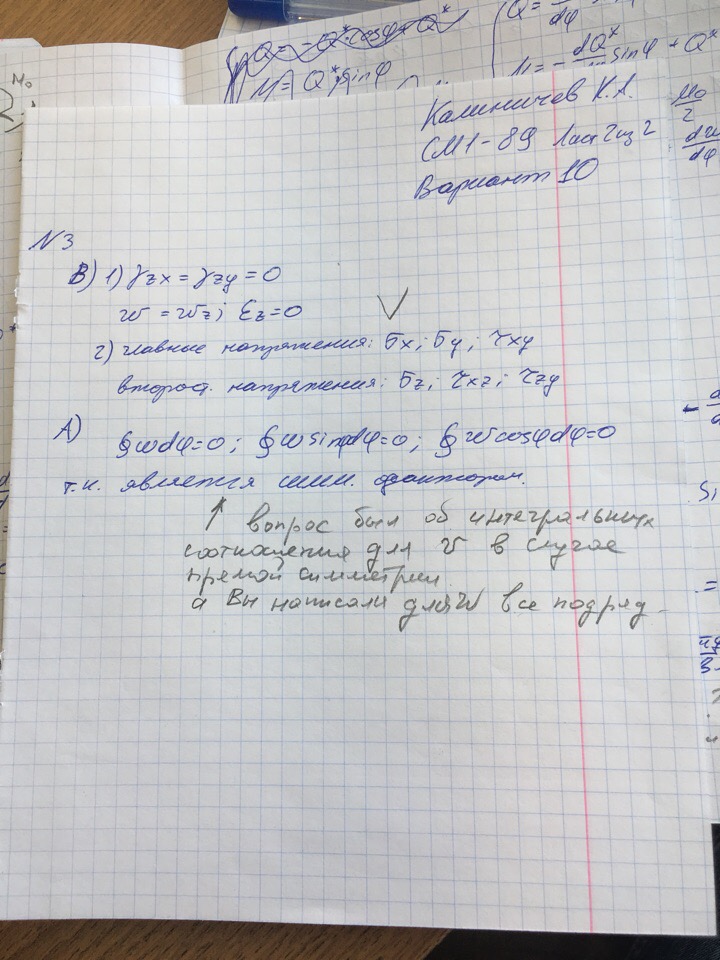 Q = -Q* cosφ + Q*
M = Q* sinφ
Q =
dφ
M = - dQ* sinφ + Q*
Калиничев К.А.
СМ1-89 Лист 2 из 2
Вариант 10
N3
В) 1) γzx = γzy = 0
w = wz; εz = 0
2) главные напряжения: σx; σy; τxy
второст. напряжения: σz; τxz; τzy
А) ∮wdφ=0; ∮w sinφdφ=0; ∮w cosφdφ=0
т.к. является симм.
↑ вопрос был об интегральных
соотношения для v в случае
прямой симметрии
а Вы написали для w все подряд